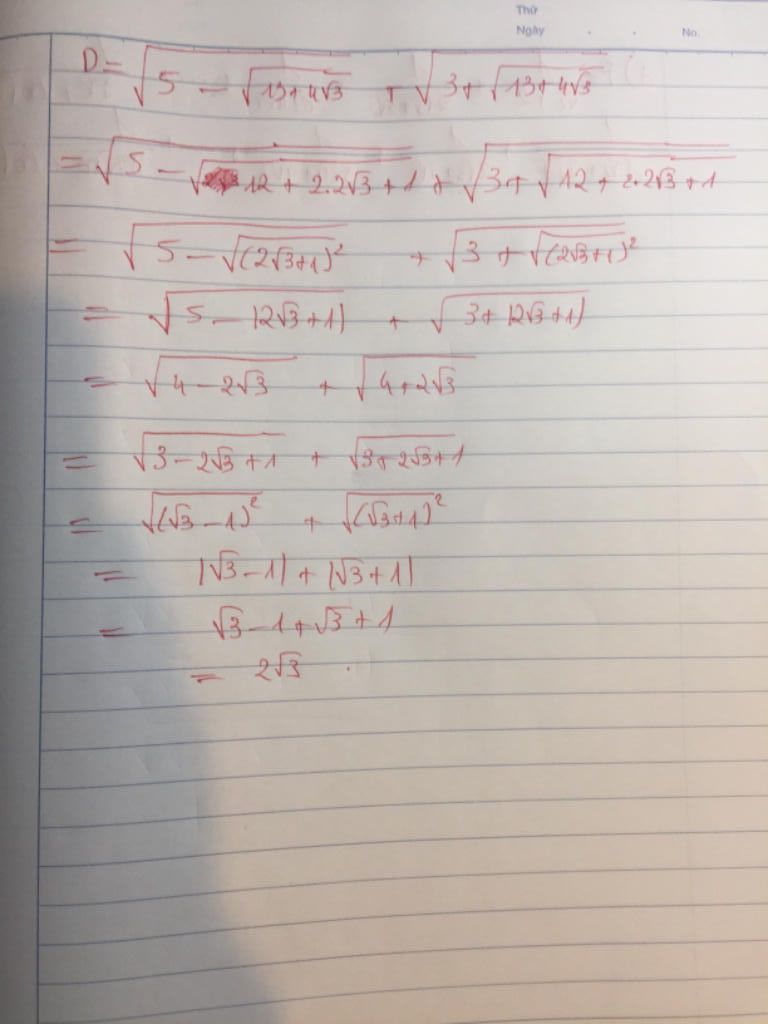 Thứ
Ngày . . No.
D = √(5 - √(13+4√3)) + √(3+√(13+4√3))
= √(5 - √(12 + 2.2√3 + 1)) + √(3+√(12 + 2.2√3 + 1))
= √(5 - √((2√3+1)²)) + √(3 + √((2√3+1)²))
= √(5 - |2√3+1|) + √(3+ |2√3+1|)
= √(4 - 2√3) + √(4+2√3)
= √(3 - 2√3 + 1) + √(3+2√3+1)
= √((√3 - 1)²) + √((√3+1)²)
= |√3 - 1| + |√3 + 1|
= √3 - 1 + √3 + 1
= 2√3 .